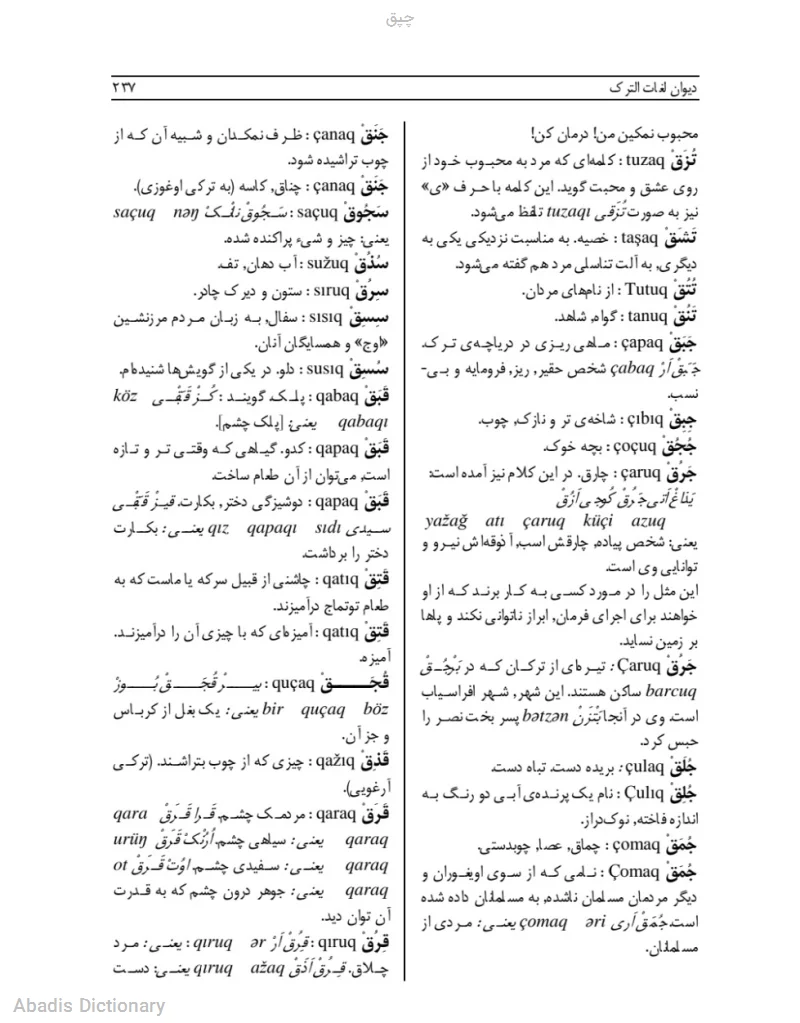 چپق
دیوان لغات الترک ۲۳۷
محبوب نمکین من! درمان کن!
تُزَقْ tuzaq : کلمه‌ای که مرد به محبوب خود از
روی عشق و محبت گوید. این کلمه با حرف «ی»
نیز به صورت تُزَقی tuzaqı تلفظ می‌شود.
تَشَقْ taşaq : خصیه. به مناسبت نزدیکی یکی به
دیگری، به آلت تناسلی مرد هم گفته می‌شود.
تُتُقْ Tutuq : از نام‌های مردان.
تَنُقْ tanuq : گواه، شاهد.
جَبَقْ çapaq : ماهی ریزی در دریاچه‌ی ترک.
جَبَقْ اَرْ çabaq شخص حقیر، ریز، فرومایه و بی-
نسب.
جِبِقْ çıbıq : شاخه‌ی تر و نازک، چوب.
جُجُقْ çoçuq : بچه خوک.
جَرُقْ çaruq : چارق. در این کلام نیز آمده است:
یَذَاغْ اَتی جَرُقْ کُوجی اَزُقْ
yažağ atı çaruq küçi azuq
یعنی: شخص پیاده، چارقش اسب، آذوقه‌اش نیرو و
توانایی وی است.
این مثل را در مورد کسی به کار برند که از او
خواهند برای اجرای فرمان، ابراز ناتوانی نکند و پاها
بر زمین نساید.
جَرُقْ Çaruq : تیره‌ای از ترکان که در بَرْجُقْ
barcuq ساکن هستند. این شهر، شهر افراسیاب
است. وی در آنجا بَتْزَنْ bətzən پسر بخت نصر را
حبس کرد.
جُلَقْ çulaq : بریده دست. تباه دست.
جُلِقْ Çulıq : نام یک پرنده‌ی آبی دو رنگ به
اندازه فاخته، نوک‌دراز.
جُمَقْ çomaq : چماق، عصا، چوبدستی.
جُمَقْ Çomaq : نامی که از سوی اویغوران و
دیگر مردمان مسلمان ناشده، به مسلمانان داده شده
است. جُمَقْ اَری çomaq əri یعنی: مردی از
مسلمانان.
جَنَقْ çanaq : ظرف نمکدان و شبیه آن که از
چوب تراشیده شود.
جَنَقْ çanaq : چناق، کاسه (به ترکی اوغوزی).
سَجُوقْ saçuq : سَجُوقْ نانْکْ saçuq nəŋ
یعنی: چیز و شیء پراکنده شده.
سُذُقْ sužuq : آب دهان، تف.
سِرُقْ sıruq : ستون و دیرک چادر.
سِسِقْ sısıq : سفال، به زبان مردم مرزنشین
«اوج» و همسایگان آنان.
سُسِقْ susıq : دلو. در یکی از گویش‌ها شنیده‌ام.
قَبَقْ qabaq : پلک. گویند: کُزْ قَبَقی köz
qabaqı یعنی: [پلک چشم].
قَبَقْ qapaq : کدو. گیاهی که وقتی تر و تازه
است، می‌توان از آن طعام ساخت.
قَبَقْ qapaq : دوشیزگی دختر، بکارت. قیزْ قَبَقی
سیدی qız qapaqı sıdı یعنی: بکارت
دختر را برداشت.
قَتِقْ qatıq : چاشنی از قبیل سرکه یا ماست که به
طعام توتماج درآمیزند.
قَتِقْ qatıq : آمیزه‌ای که با چیزی آن را درآمیزند.
آمیزه.
قُجَقْ quçaq : بیرْ قُجَقْ بُوزْ
bir quçaq böz یعنی: یک بغل از کرباس
و جز آن.
قَذِقْ qažıq : چیزی که از چوب بتراشند. (ترکی
آرغویی).
قَرَقْ qaraq : مردمک چشم. قَرا قَرَقْ qara
qaraq یعنی: سیاهی چشم. اُرُنْکْ قَرَقْ urüŋ
qaraq یعنی: سفیدی چشم. اوُتْ قَرَقْ ot
qaraq یعنی: جوهر درون چشم که به قدرت
آن توان دید.
قِرُقْ qıruq : قِرُقْ اَرْ qıruq ər : یعنی: مرد
چلاق. قِرُقْ اَذَقْ qıruq ažaq یعنی: دست
Abadis Dictionary